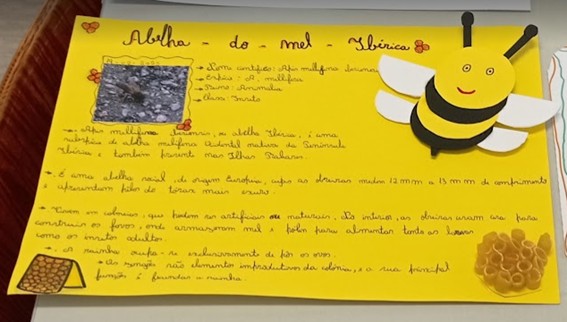 Abelha - do - mel - Ibérica
→ Nome científico: Apis mellifera iberiensis
→ Espécie: A. mellifera
→ Reino: Animalia
→ Classe: Insecta
→ Apis mellifera iberiensis, a abelha Ibérica, é uma
subespécie de abelha melífera Ocidental nativa da Península
Ibérica e também presente nas Ilhas Baleares.
→ É uma abelha social, de origem Europeia, cujas as obreiras medem 12 mm a 13 mm de comprimento
e apresentam pêlos do tórax mais escuro.
→ Vivem em colmeias, que podem ser artificiais ou naturais. No interior, as obreiras usam cera para
construir os favos, onde armazenam mel e pólen para alimentar tanto as larvas
como os insetos adultos.
→ A rainha ocupa-se exclusivamente de pôr os ovos.
→ Os zangões são elementos improdutivos da colónia, e a sua principal
função é fecundar a rainha.